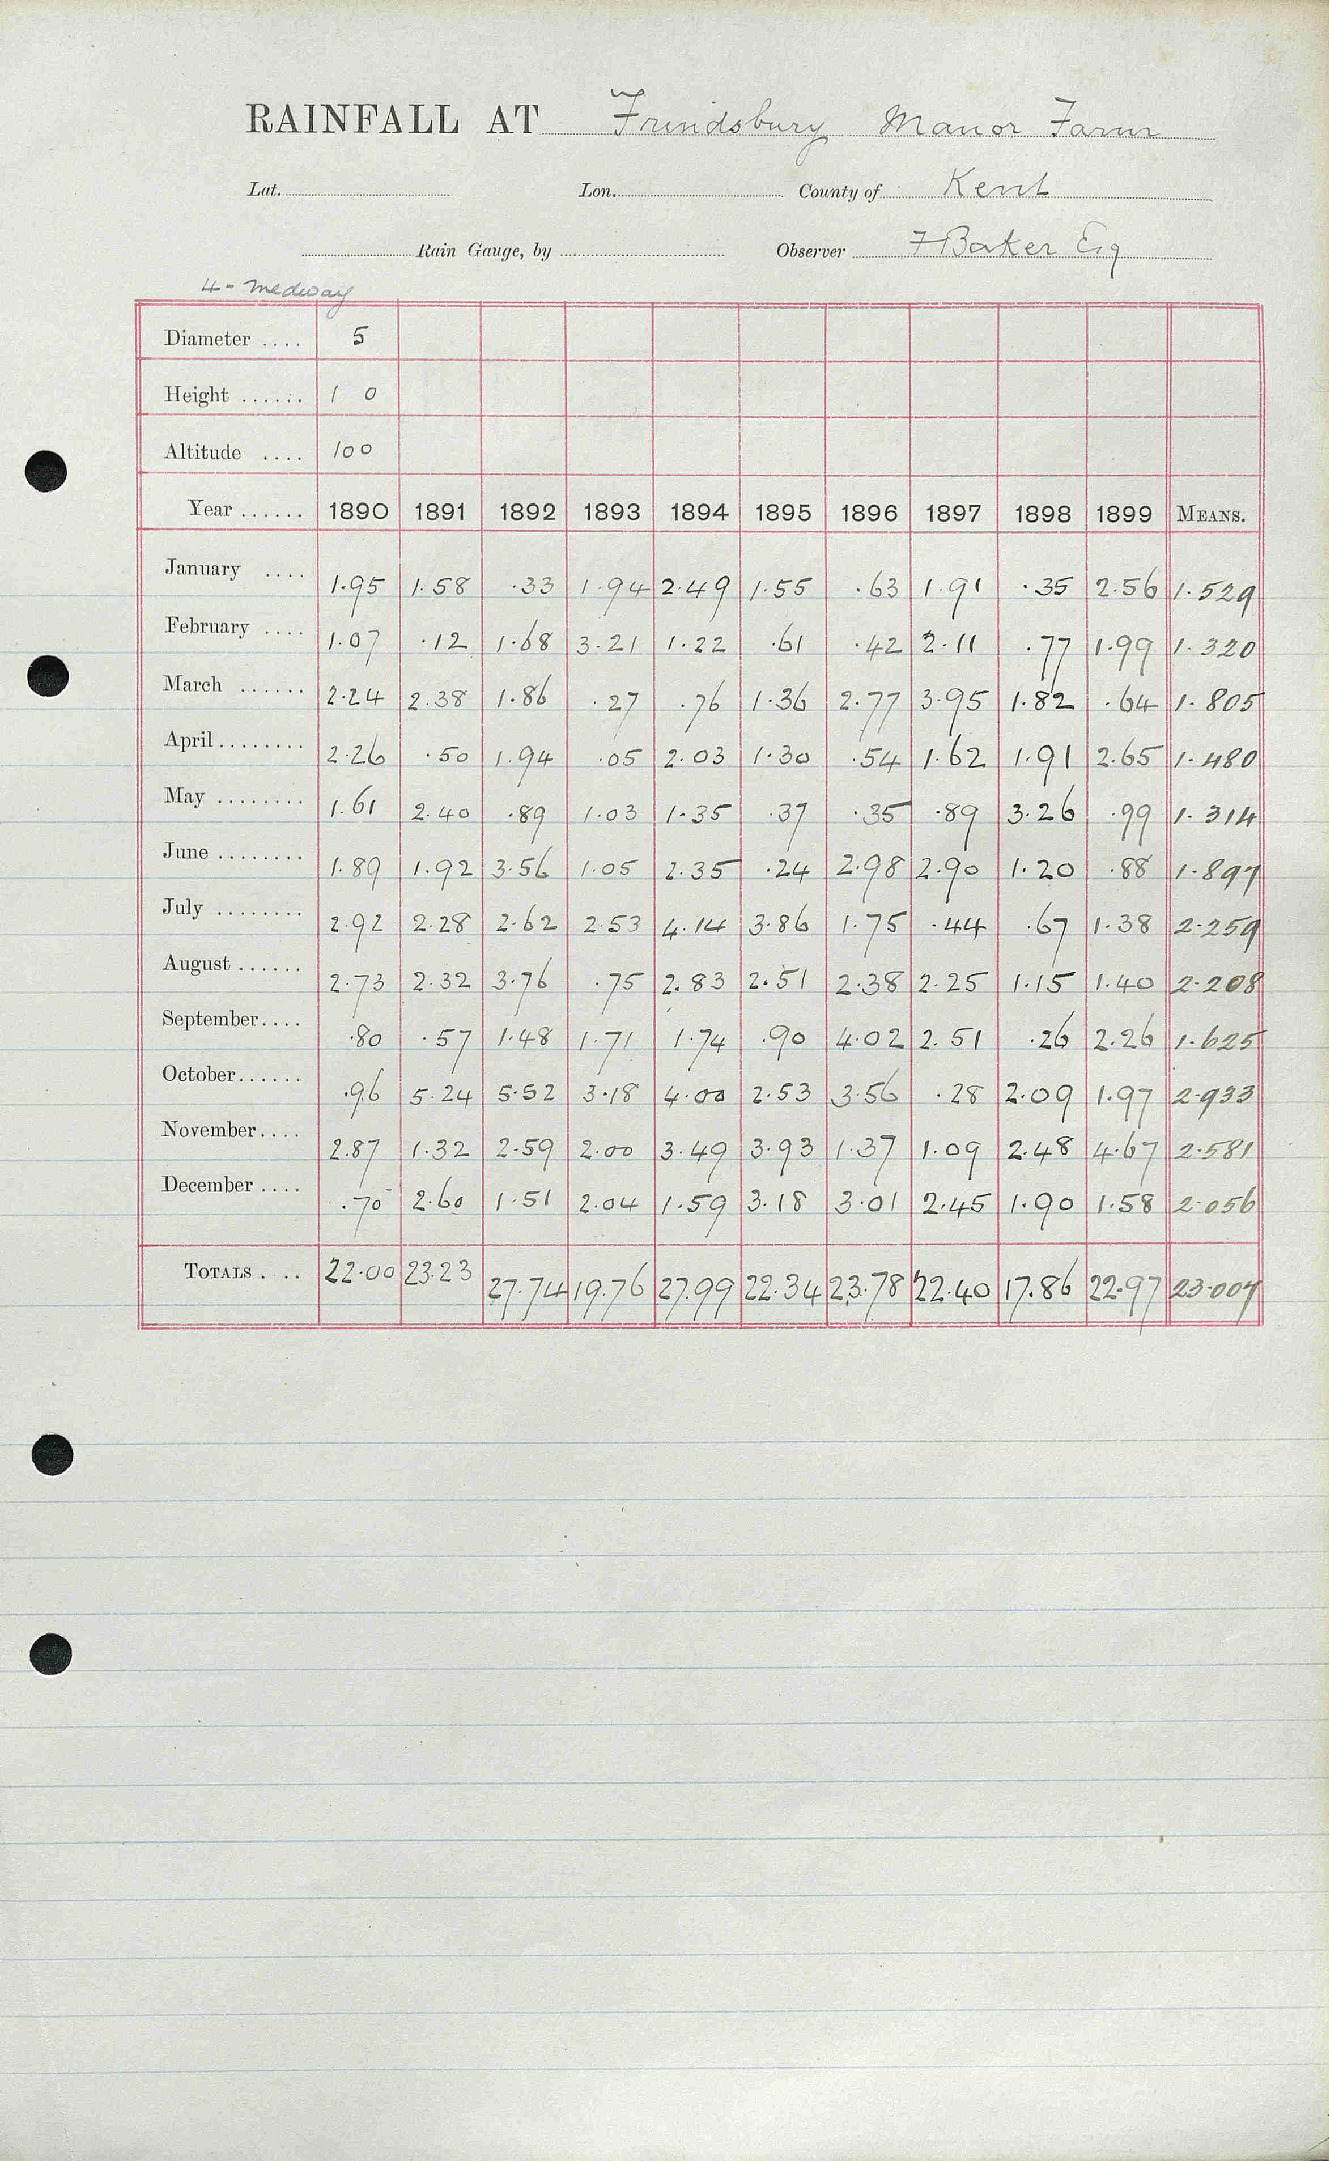 RAINFALL AT Frindsbury Manor Farm
Lat. Lon. County of Kent
Rain Gauge, by Observer F Baker Esq
4 - Medway
Diameter .... 5
Height ...... 1 0
Altitude .... 100
Year ...... 1890 1891 1892 1893 1894 1895 1896 1897 1898 1899 MEANS.
January .... 1.95 1.58 .33 1.94 2.49 1.55 .63 1.91 .35 2.56 1.529
February .... 1.07 .12 1.68 3.21 1.22 .61 .42 2.11 .77 1.99 1.320
March ...... 2.24 2.38 1.86 .27 .76 1.36 2.77 3.95 1.82 .64 1.805
April ........ 2.26 .50 1.94 .05 2.03 1.30 .54 1.62 1.91 2.65 1.480
May ........ 1.61 2.40 .89 1.03 1.35 .37 .35 .89 3.26 .99 1.314
June ........ 1.89 1.92 3.56 1.05 2.35 .24 2.98 2.90 1.20 .88 1.897
July ........ 2.92 2.28 2.62 2.53 4.14 3.86 1.75 .44 .67 1.38 2.259
August ...... 2.73 2.32 3.76 .75 2.83 2.51 2.38 2.25 1.15 1.40 2.208
September.... .80 .57 1.48 1.71 1.74 .90 4.02 2.51 .26 2.26 1.625
October...... .96 5.24 5.52 3.18 4.00 2.53 3.56 .28 2.09 1.97 2.933
November.... 2.87 1.32 2.59 2.00 3.49 3.93 1.37 1.09 2.48 4.67 2.581
December .... .70 2.60 1.51 2.04 1.59 3.18 3.01 2.45 1.90 1.58 2.056
TOTALS .... 22.00 23.23 27.74 19.76 27.99 22.34 23.78 22.40 17.86 22.97 23.007